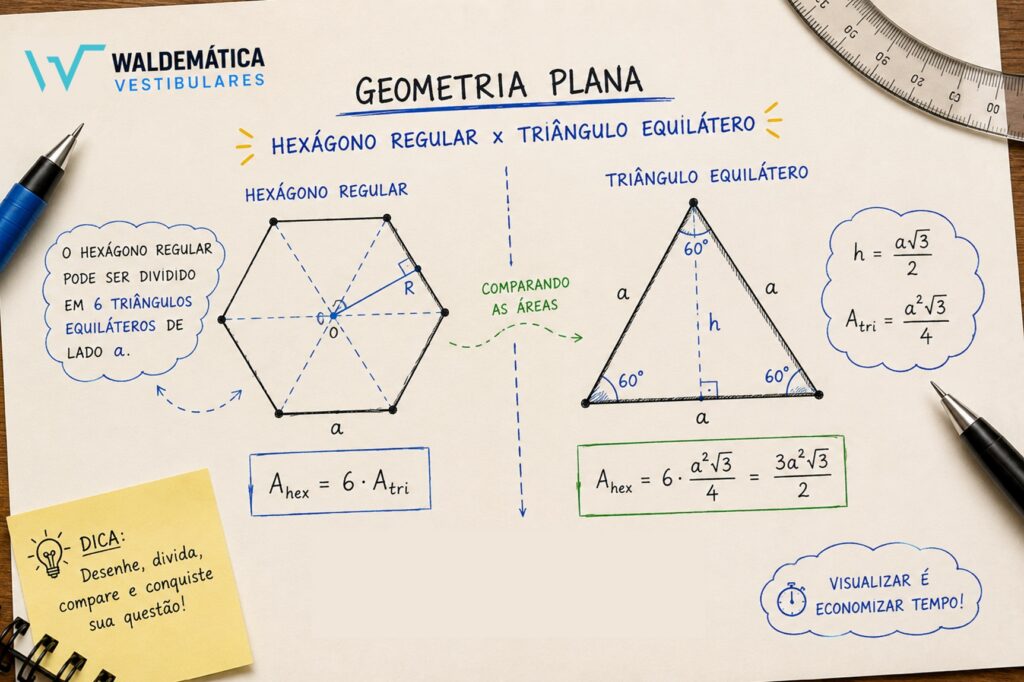 WALDEMÁTICA
VESTIBULARES
GEOMETRIA PLANA
HEXÁGONO REGULAR x TRIÂNGULO EQUILÁTERO
HEXÁGONO REGULAR
O HEXÁGONO REGULAR
PODE SER DIVIDIDO
EM 6 TRIÂNGULOS
EQUILÁTEROS DE
LADO a.
R
O
a
A_hex = 6 · A_tri
COMPARANDO
AS ÁREAS
TRIÂNGULO EQUILÁTERO
60°
a
a
h
60°
60°
a
h = a√3/2
A_tri = a²√3/4
A_hex = 6 · a²√3/4 = 3a²√3/2
DICA:
Desenhe, divida,
compare e conquiste
sua questão!
VISUALIZAR É
ECONOMIZAR TEMPO!